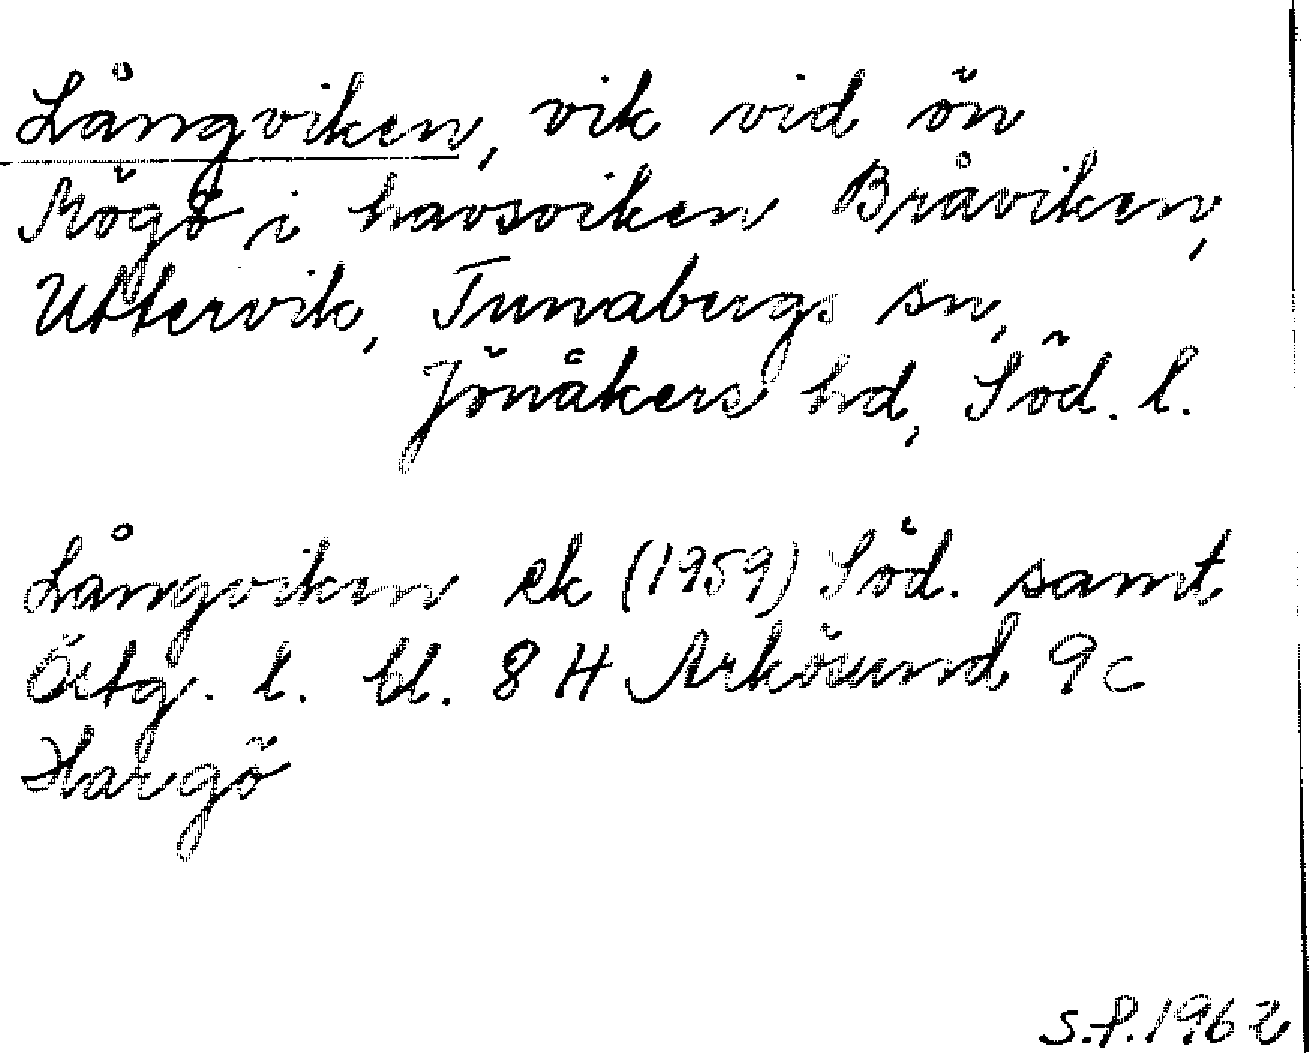 Långviken, vik vid ön
Rögö i havsviken Bråviken,
Uttervik, Tunabergs sn,
Jönåkers hd, Söd. l.
Långviken ek (1959) Söd. samt
Östg. l. bl. 8 H Arkösund 9c
Hargö
S.P. 1962